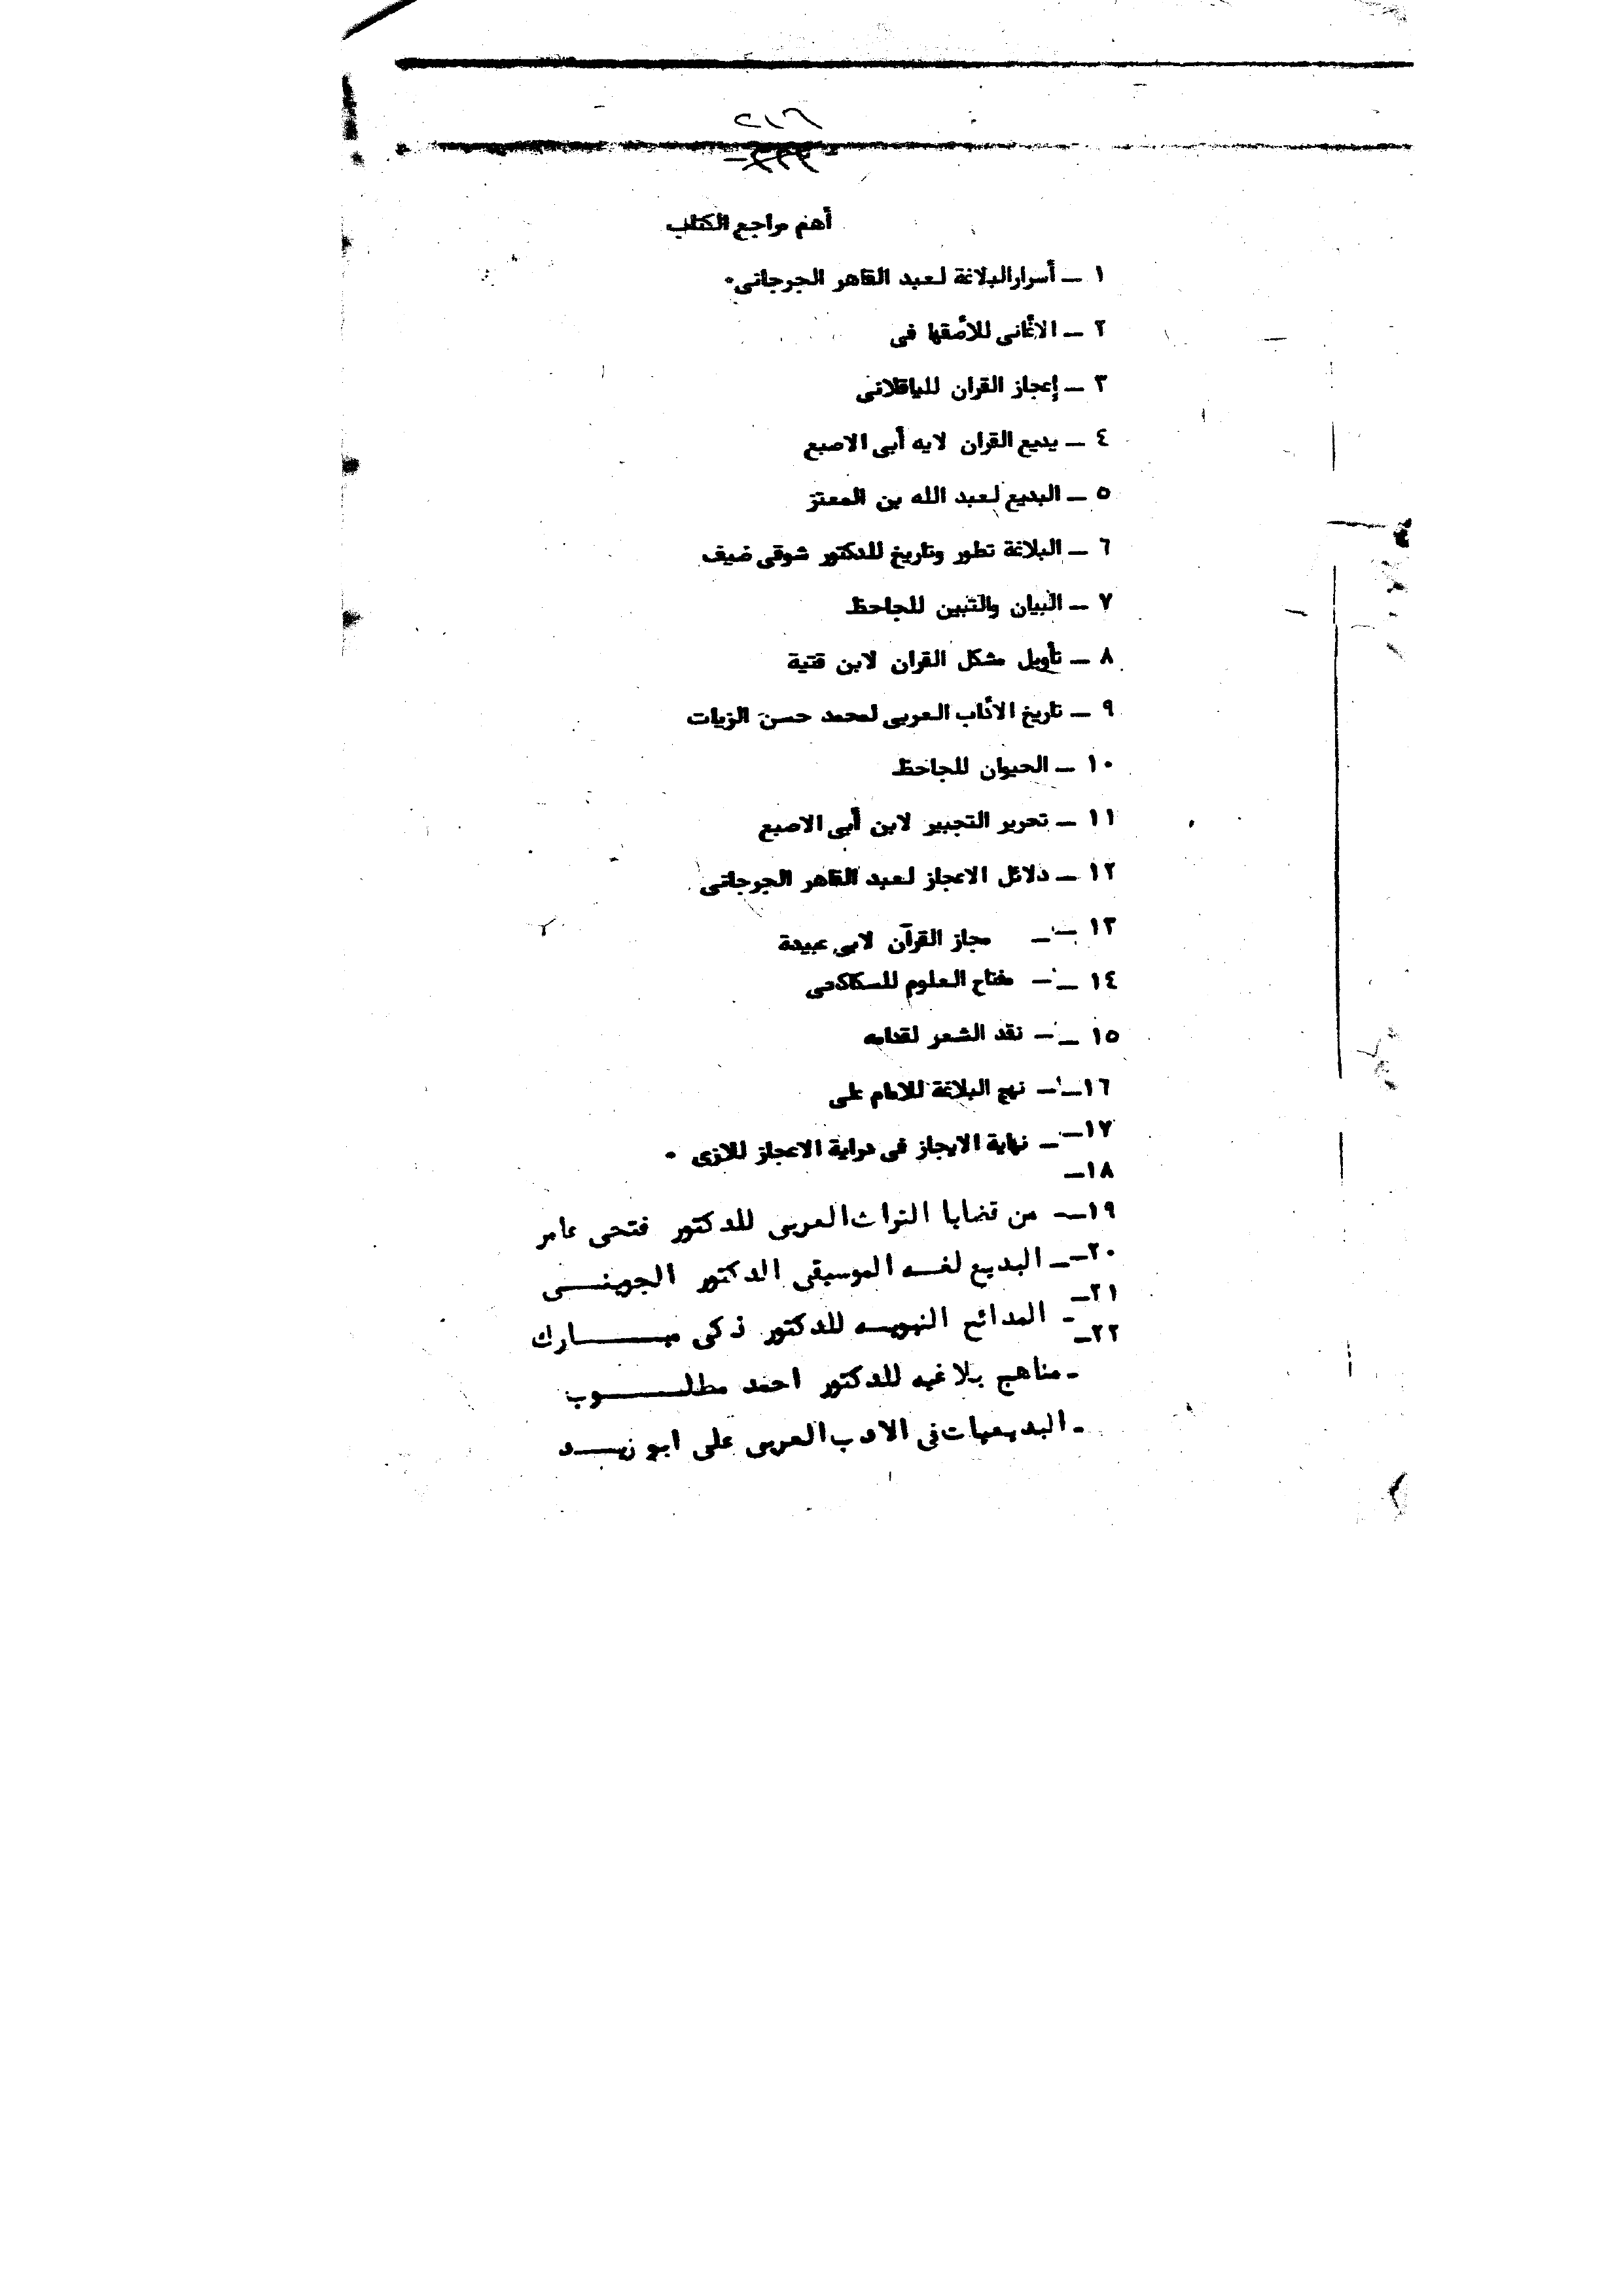 ٢١٦
أهم مراجع الكتاب
١ – أسرار البلاغة لعبد القاهر الجرجانى٠
٢ – الأغانى للأصقها فى
٣ – إعجاز القران للباقلانى
٤ – بديع القران لابه أبى الاصبع
٥ – البديع لعبد الله بن المعتز
٦ – البلاغة تطور وتاريخ للدكتور شوقى ضيف
٧ – البيان والتبين للجاحظ
٨ – تأويل مشكل القران لابن قتية
٩ – تاريخ الأداب العربى لمحمد حسن الزيات
١٠ – الحيوان للجاحظ
١١ – تحرير التجبير لابن أبى الاصبع
١٢ – دلائل الاعجاز لعبد القاهر الجرجانى
١٣ – – مجاز القرآن لابى عبيدة
١٤ – – مفتاح العلوم للسكاكى
١٥ – – نقد الشعر لقدامه
١٦ – – نهج البلاغة للامام على
١٧ – – نهاية الايجاز فى دراية الاعجاز للازى ٠
١٨ –
١٩ – – من قضايا التراث العربى للدكتور فتحى عامر
٢٠ – – البديع لغـــه الموسيقى الدكتور الجوينـــى
٢١ –
- المدائح النبويـه للدكتور زكى مبـــــارك
٢٢ –
- مناهج بلاغيه للدكتور احمد مطلـــــوب
- البديعيات فى الادب العربى على ابو زيـــد